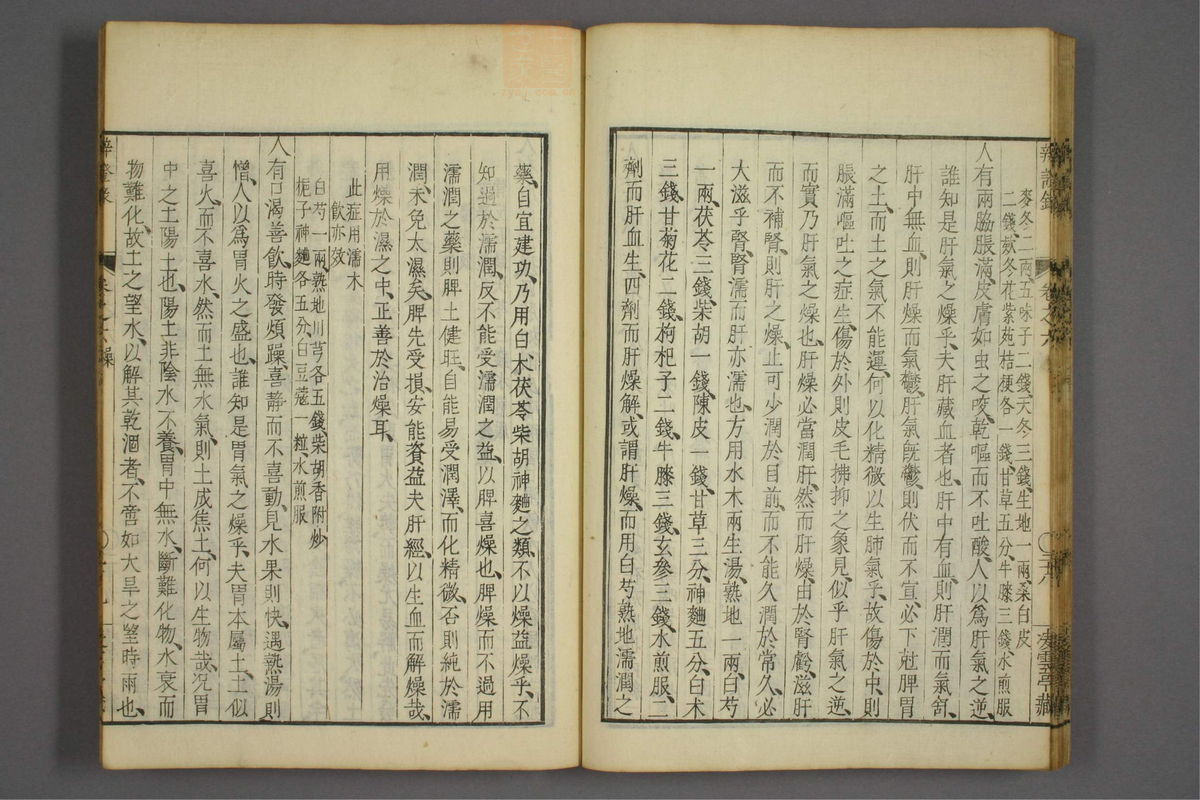 辨證錄
卷之六
凌雲亭藏
麥冬二兩五味子二錢天冬三錢生地一兩桑白皮
二錢款冬花紫菀桔梗各一錢甘草五分牛膝三錢水煎服
人有兩脇脹滿皮膚如虫之咬乾嘔而不吐酸人以爲肝氣之逆
誰知是肝氣之燥乎夫肝藏血者也肝中有血則肝潤而氣舒
肝中無血則肝燥而氣鬱肝氣旣鬱則伏而不宣必下尅脾胃
之土而土之氣不能運何以化精微以生肺氣乎故傷於中則
脹滿嘔吐之症生傷於外則皮毛拂抑之象見似乎肝氣之逆
而實乃肝氣之燥也肝燥必當潤肝然而肝燥由於腎虧滋肝
而不補腎則肝之燥止可少潤於目前而不能久潤於常久必
大滋乎腎腎濡而肝亦濡也方用水木兩生湯熟地一兩白芍
一兩茯苓三錢柴胡一錢陳皮一錢甘草三分神麯五分白术
三錢甘菊花二錢枸杞子二錢牛膝三錢玄參三錢水煎服二
劑而肝血生四劑而肝燥解或謂肝燥而用白芍熟地濡潤之
藥自宜建功乃用白术茯苓柴胡神麯之類不以燥益燥乎不
知過於濡潤反不能受濡潤之益以脾喜燥也脾燥而不過用
濡潤之藥則脾土健旺自能易受潤澤而化精微否則純於濡
潤未免太濕矣脾先受損安能資益夫肝經以生血而解燥哉
用燥於濕之中正善於治燥耳
此症用濡木
飲亦效
白芍一兩熟地川芎各五錢柴胡香附炒
梔子神麯各五分白豆蔻一粒水煎服
人有口渴善飲時發煩躁喜静而不喜動見水果則快遇熟湯則
憎人以爲胃火之盛也誰知是胃氣之燥乎夫胃本屬土土似
喜火而不喜水然而土無水氣則土成焦土何以生物哉况胃
中之土陽土也陽土非陰水不養胃中無水斷難化物水衰而
物難化故土之望水以解其乾涸者不啻如大旱之望時雨也